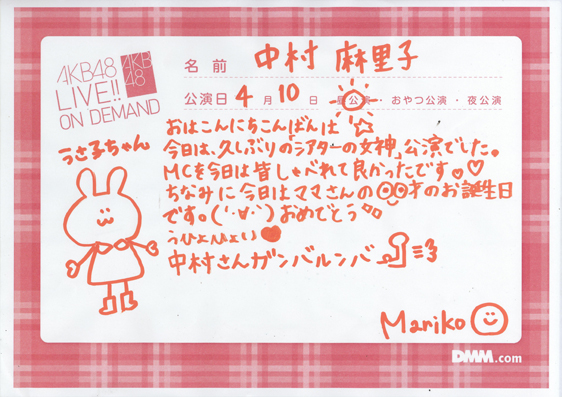 AKB48
LIVE!!
ON DEMAND
AKB
48
名前 中村 麻里子
公演日 4月10日 昼公演・おやつ公演・夜公演
うさ子ちゃん
おはこんにちこんばんは☆
今日は、久しぶりの「シアターの女神」公演でした。
MCを今日は皆しゃべれて良かったです。♡
ちなみに今日はママさんの○○才のお誕生日
です。(´・∀・`)おめでとう
うひょひょい
中村さんガンバルンバ
Mariko
DMM.com